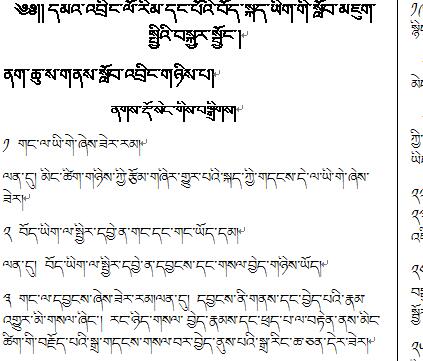 ༄༅།། དམའ་འབྲིང་ལོ་རིམ་དང་པོའི་བོད་སྐད་ཡིག་གི་སློབ་མཇུག་
སྤྱིའི་བསྐྱར་སྦྱོང་།
ནག་ཆུ་ས་གནས་སློབ་འབྲིང་གཉིས་པ།
ནགས་རྡོ་སེང་གིས་བསྒྲིགས།
༡ གང་ལ་ཡི་གེ་ཞེས་ཟེར་རམ།
ལན་དུ། མིང་ཚིག་གཉིས་ཀྱི་རྩོམ་གཞིར་གྱུར་པའི་སྐད་ཀྱི་གདངས་དེ་ལ་ཡི་གེ་ཞེས་
ཟེར།
༢ བོད་ཡིག་ལ་སྤྱིར་དབྱེ་ན་གང་དང་གང་ཡོད་དམ།
ལན་དུ། བོད་ཡིག་ལ་སྤྱིར་དབྱེ་ན་དབྱངས་དང་གསལ་བྱེད་གཉིས་ཡོད།
༣ གང་ལ་དབྱངས་ཞེས་ཟེར་རམ།ལན་དུ། དབྱངས་ནི་གནས་དང་བྱེད་པའི་རྣམ་
འགྱུར་མི་གསལ་ཞིང་། རང་ཉིད་གསལ་བྱེད་རྣམས་དང་ཕྲད་པ་ལ་བརྟེན་ནས་མིང་
ཚིག་གི་བརྗོད་པའི་སྒྲ་གདངས་གསལ་བར་བྱེད་ནུས་པའི་སྒྲ་རིང་ཆ་ཅན་དེར་ཟེར།